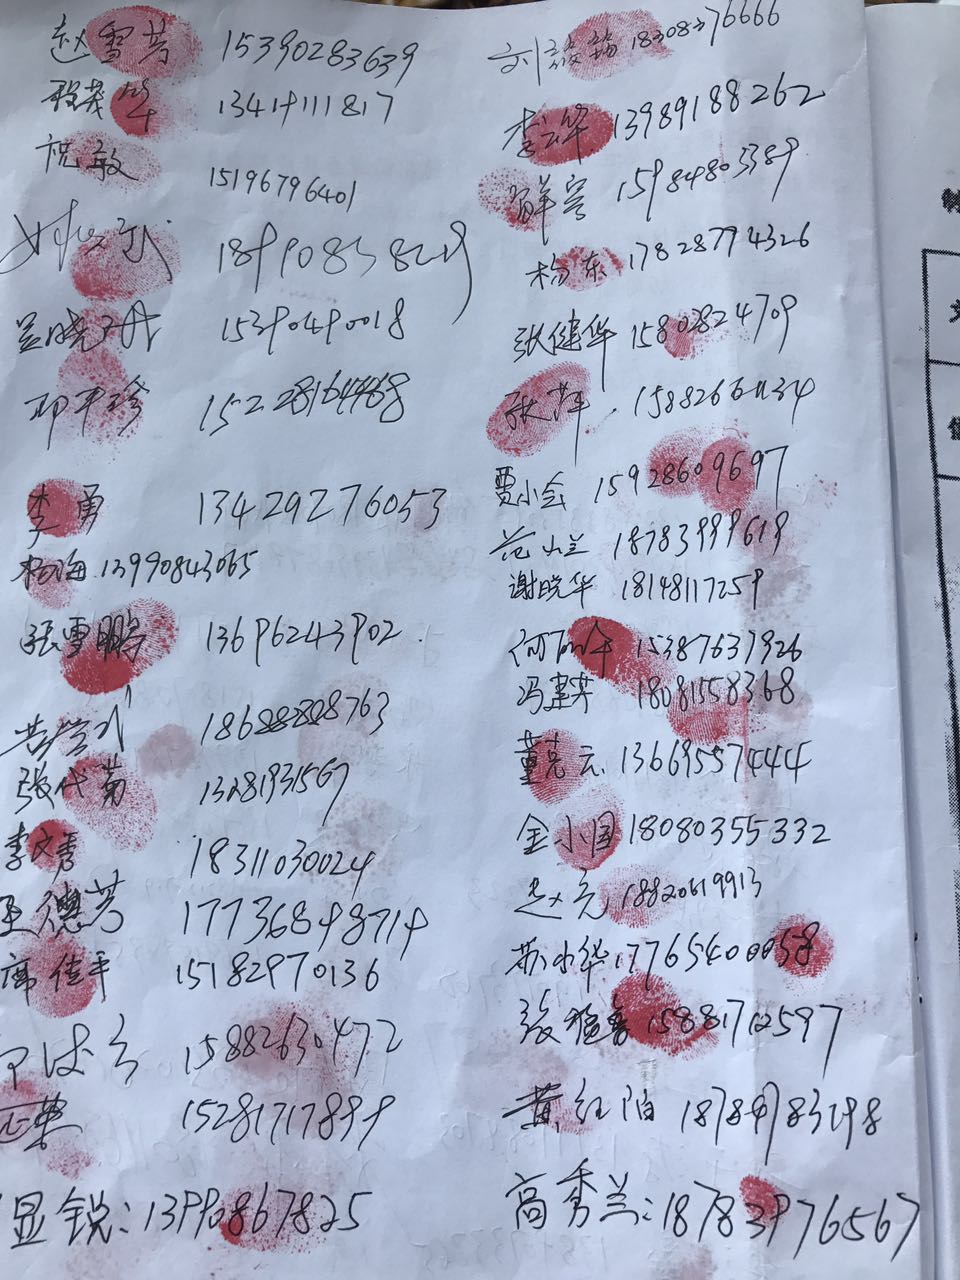 赵雪芳 15390283639
程茂华 13419111817
祝敏 15196796401
18990858219
吴晓丹 15390490018
邓平珍
李勇 13429276053
杨海 13990843065
张雪鹏 13696243902
黄学 18688888763
张代菊 13281931567
李文秀 18311030024
王德芳 17736848714
席佳平 15182970136
15882630472
15281717899
显锐:13990867825
刘 18308376666
李云华 13989188262
鲜容 15984803389
杨东 17828794326
张健华 15808824709
张萍
贾小会 15928609697
范小兰 18783999619
谢晓华 18148117259
何丽华 15387637926
冯建英 18081558368
董克云 13669557444
金小国 18080355332
赵亮 18820619913
苏小华 17765400058
15881712597
黄红陌
高秀兰:18783976567